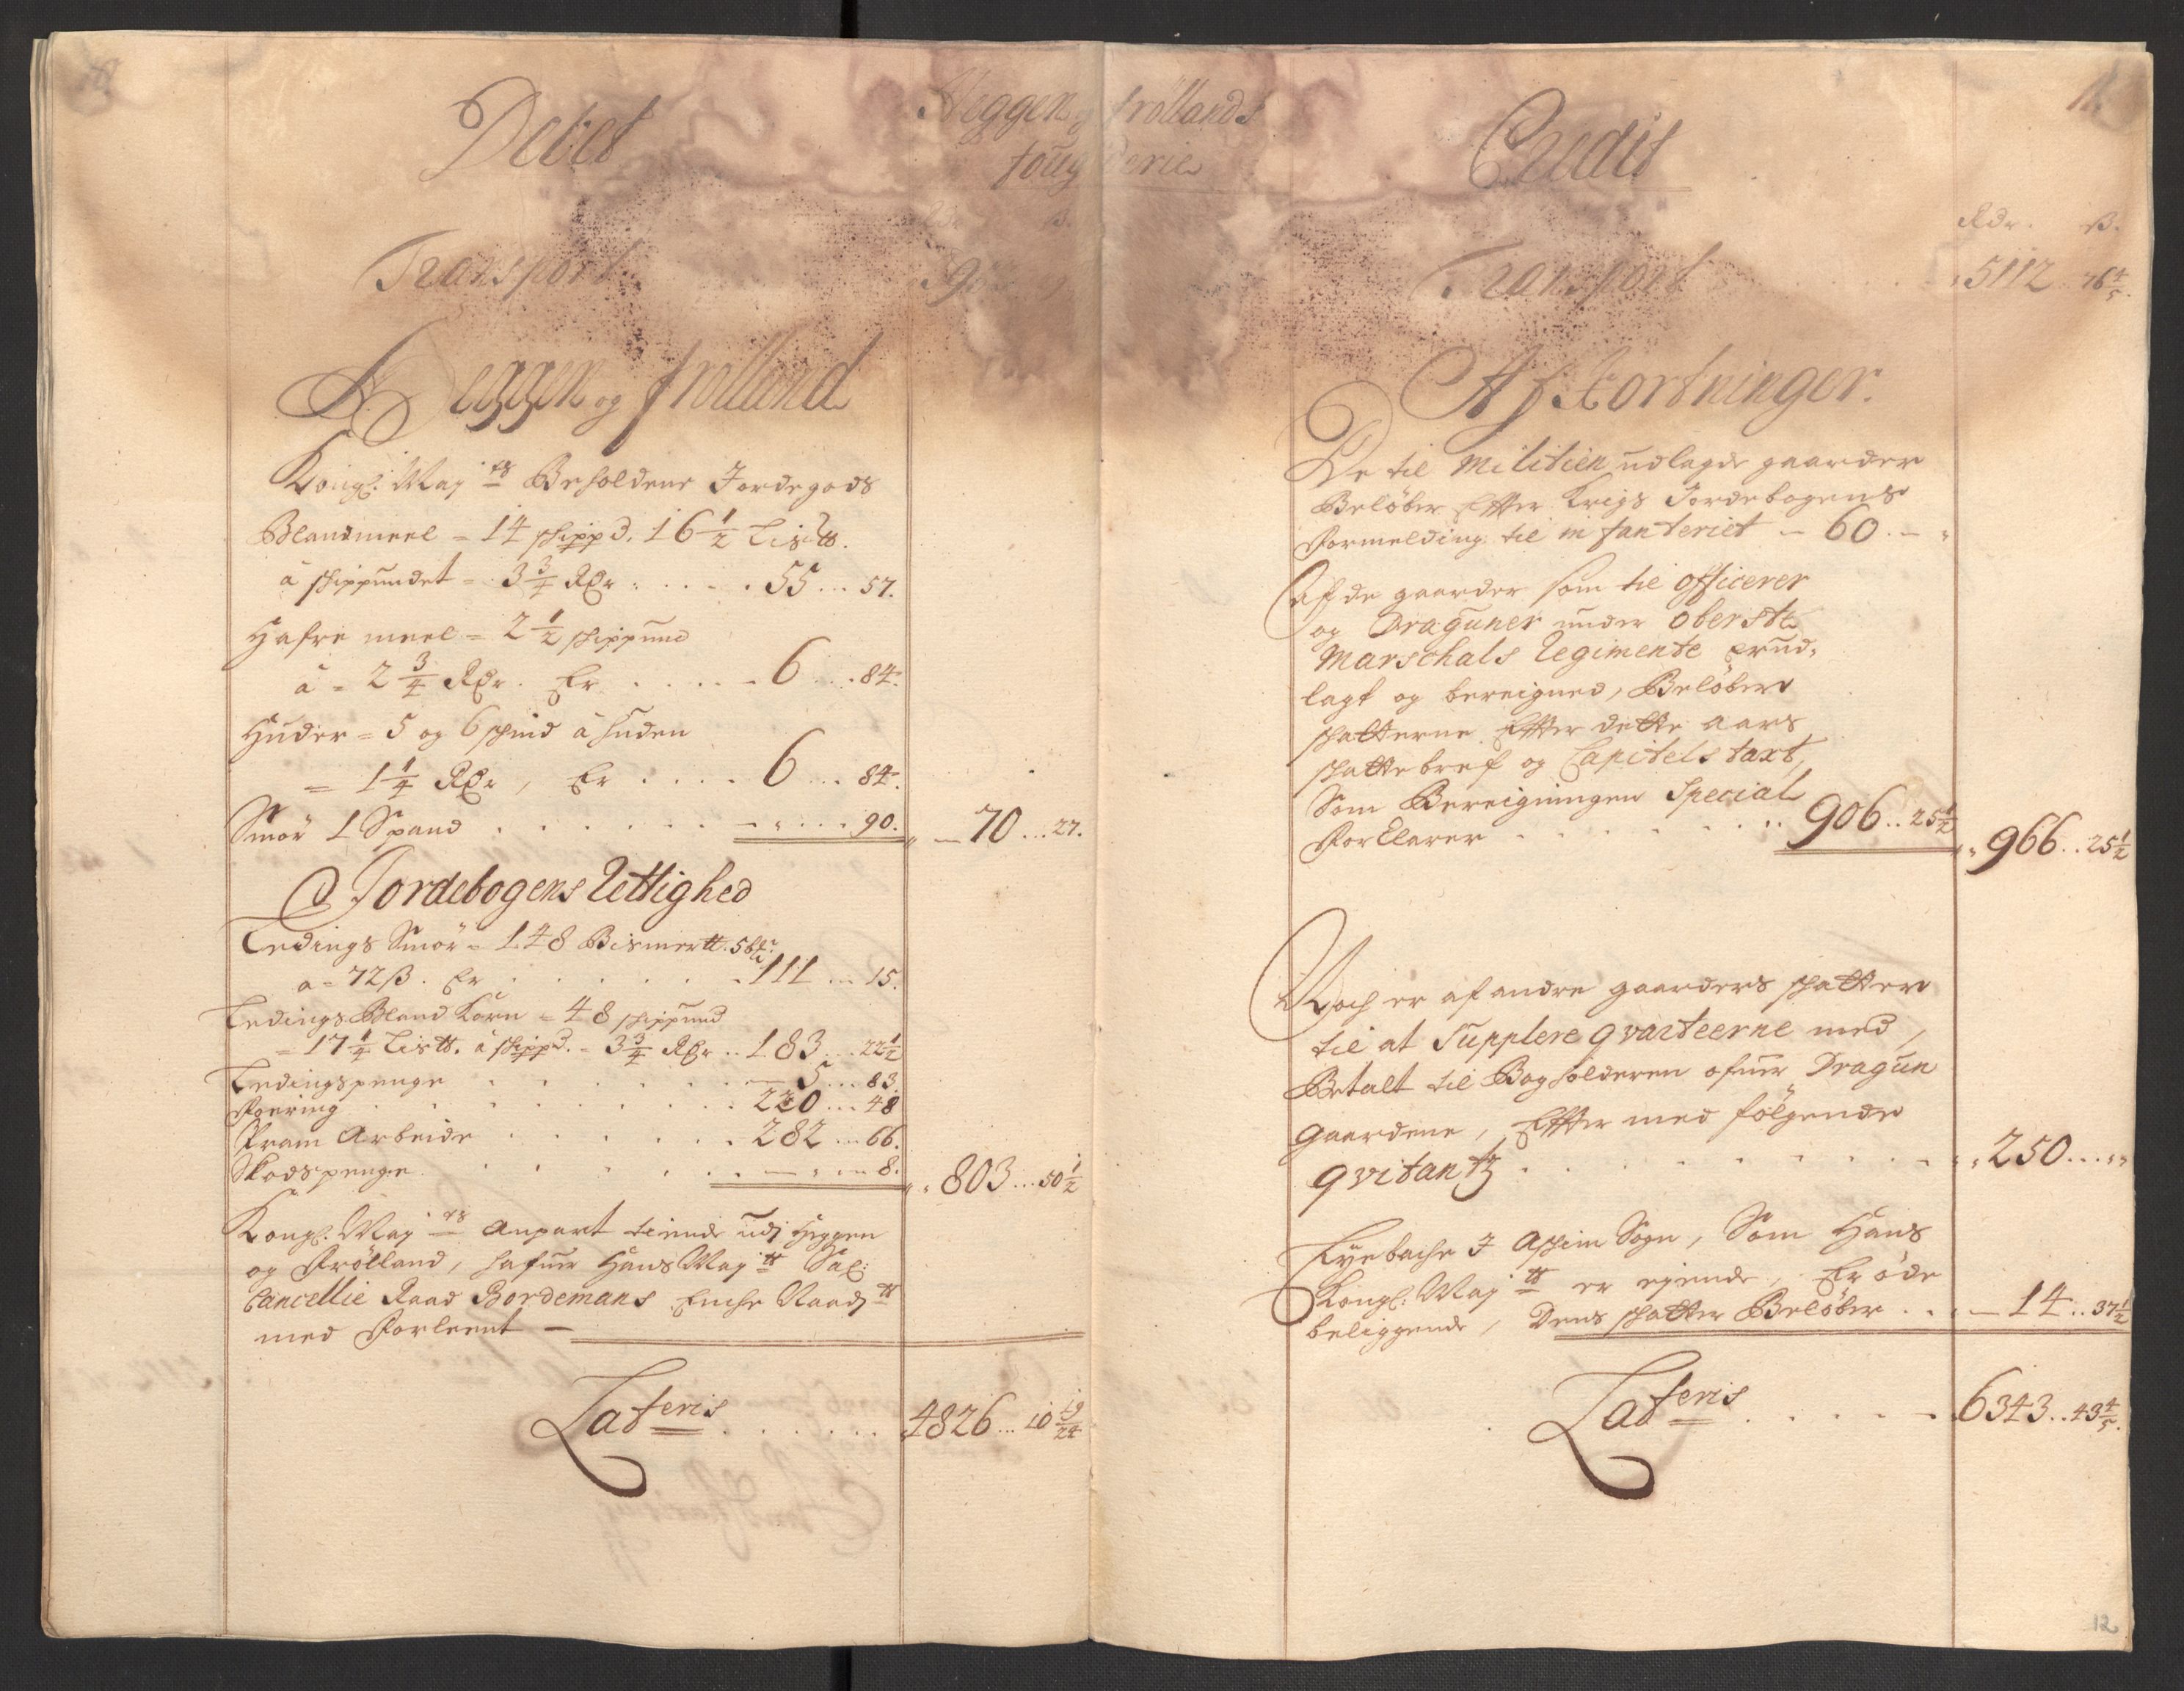 Debet
Heggen og Frøllands
fougderie
Transport
Heggen og Frøllend
Kongl: May:ts Beholdene Jordegods
Blandmeel = 14 skippd. 16 1/2 Lis℔.
à skippundet = 3 3/4 Rdr . . . . 55 ... 57.
Hafre meel = 2 1/2 skippund
à = 2 3/4 Rdr. Er . . . . . 6 ... 84.
Huder = 5 og 6 skind à huden
= 1 1/4 Rdr, Er . . . . 6 ... 84.
Smør 1 Spand . . . . . . „ ... 90. „ — 70 ... 27.
Jordebogens Rettighed
Ledings Smør = 148 Bismer℔.
a = 72 ß. Er . . . . . . 111 ... 15.
Ledings Bland Korn = 48 skippund
= 17 1/4 Lis℔. à skippd. = 3 3/4 Rdr .. 183 ... 22 1/2
Ledingspenge . . . . . . — 5 ... 83.
Foering . . . . . . . 220 ... 48
Pram Arbeide . . . . . . 282 ... 66.
Skodspenge . . . . . . — „ — 8. „ „ 803 ... 50 1/2
Kongl: May:ts Anpart tiende udj Heggen
og Frølland, hafuer Hans May:tt Sal:
Cancellie Raad Bordemans Enche Naadjtt
med Forleent —
Lateris . . . . . . 4826 ... 10 19/24
Credit
Rdr. ß.
Transport . . . . . . 5112 76 4/5.
Af Kortninger.
De til Militien udlagde gaarder
Beløber Effter Krigs Jordebogens
Formelding til infanteriet — 60. — „
Af de gaarder som til officerer
og Draguner under Oberste
Marschals Regimente er ud-
lagt og bereigned, Beløber
skatterne Effter dette aars
skattebref og Capitels taxt,
Som Bereigningen Special
Forklarer . . . . . . 906 .. 25 1/2 „ „ 966 .. 25 1/2
Noch er af andre gaarders skatter
til at Supplere qvarteerne med,
Betalt til Bogholderen ofuer Dragun
Gaardene, Effter med følgende
qvitantz . . . . . . . . „ 250 ... „
Lyebache I Askim Sogn, Som Hans
Kongl: May:tt er ejende, Er øde
beliggende, Dens skatter Beløber . . . — 14 .. 37 1/2
Lateris . . . . . 6343 .. 43 4/5.
12